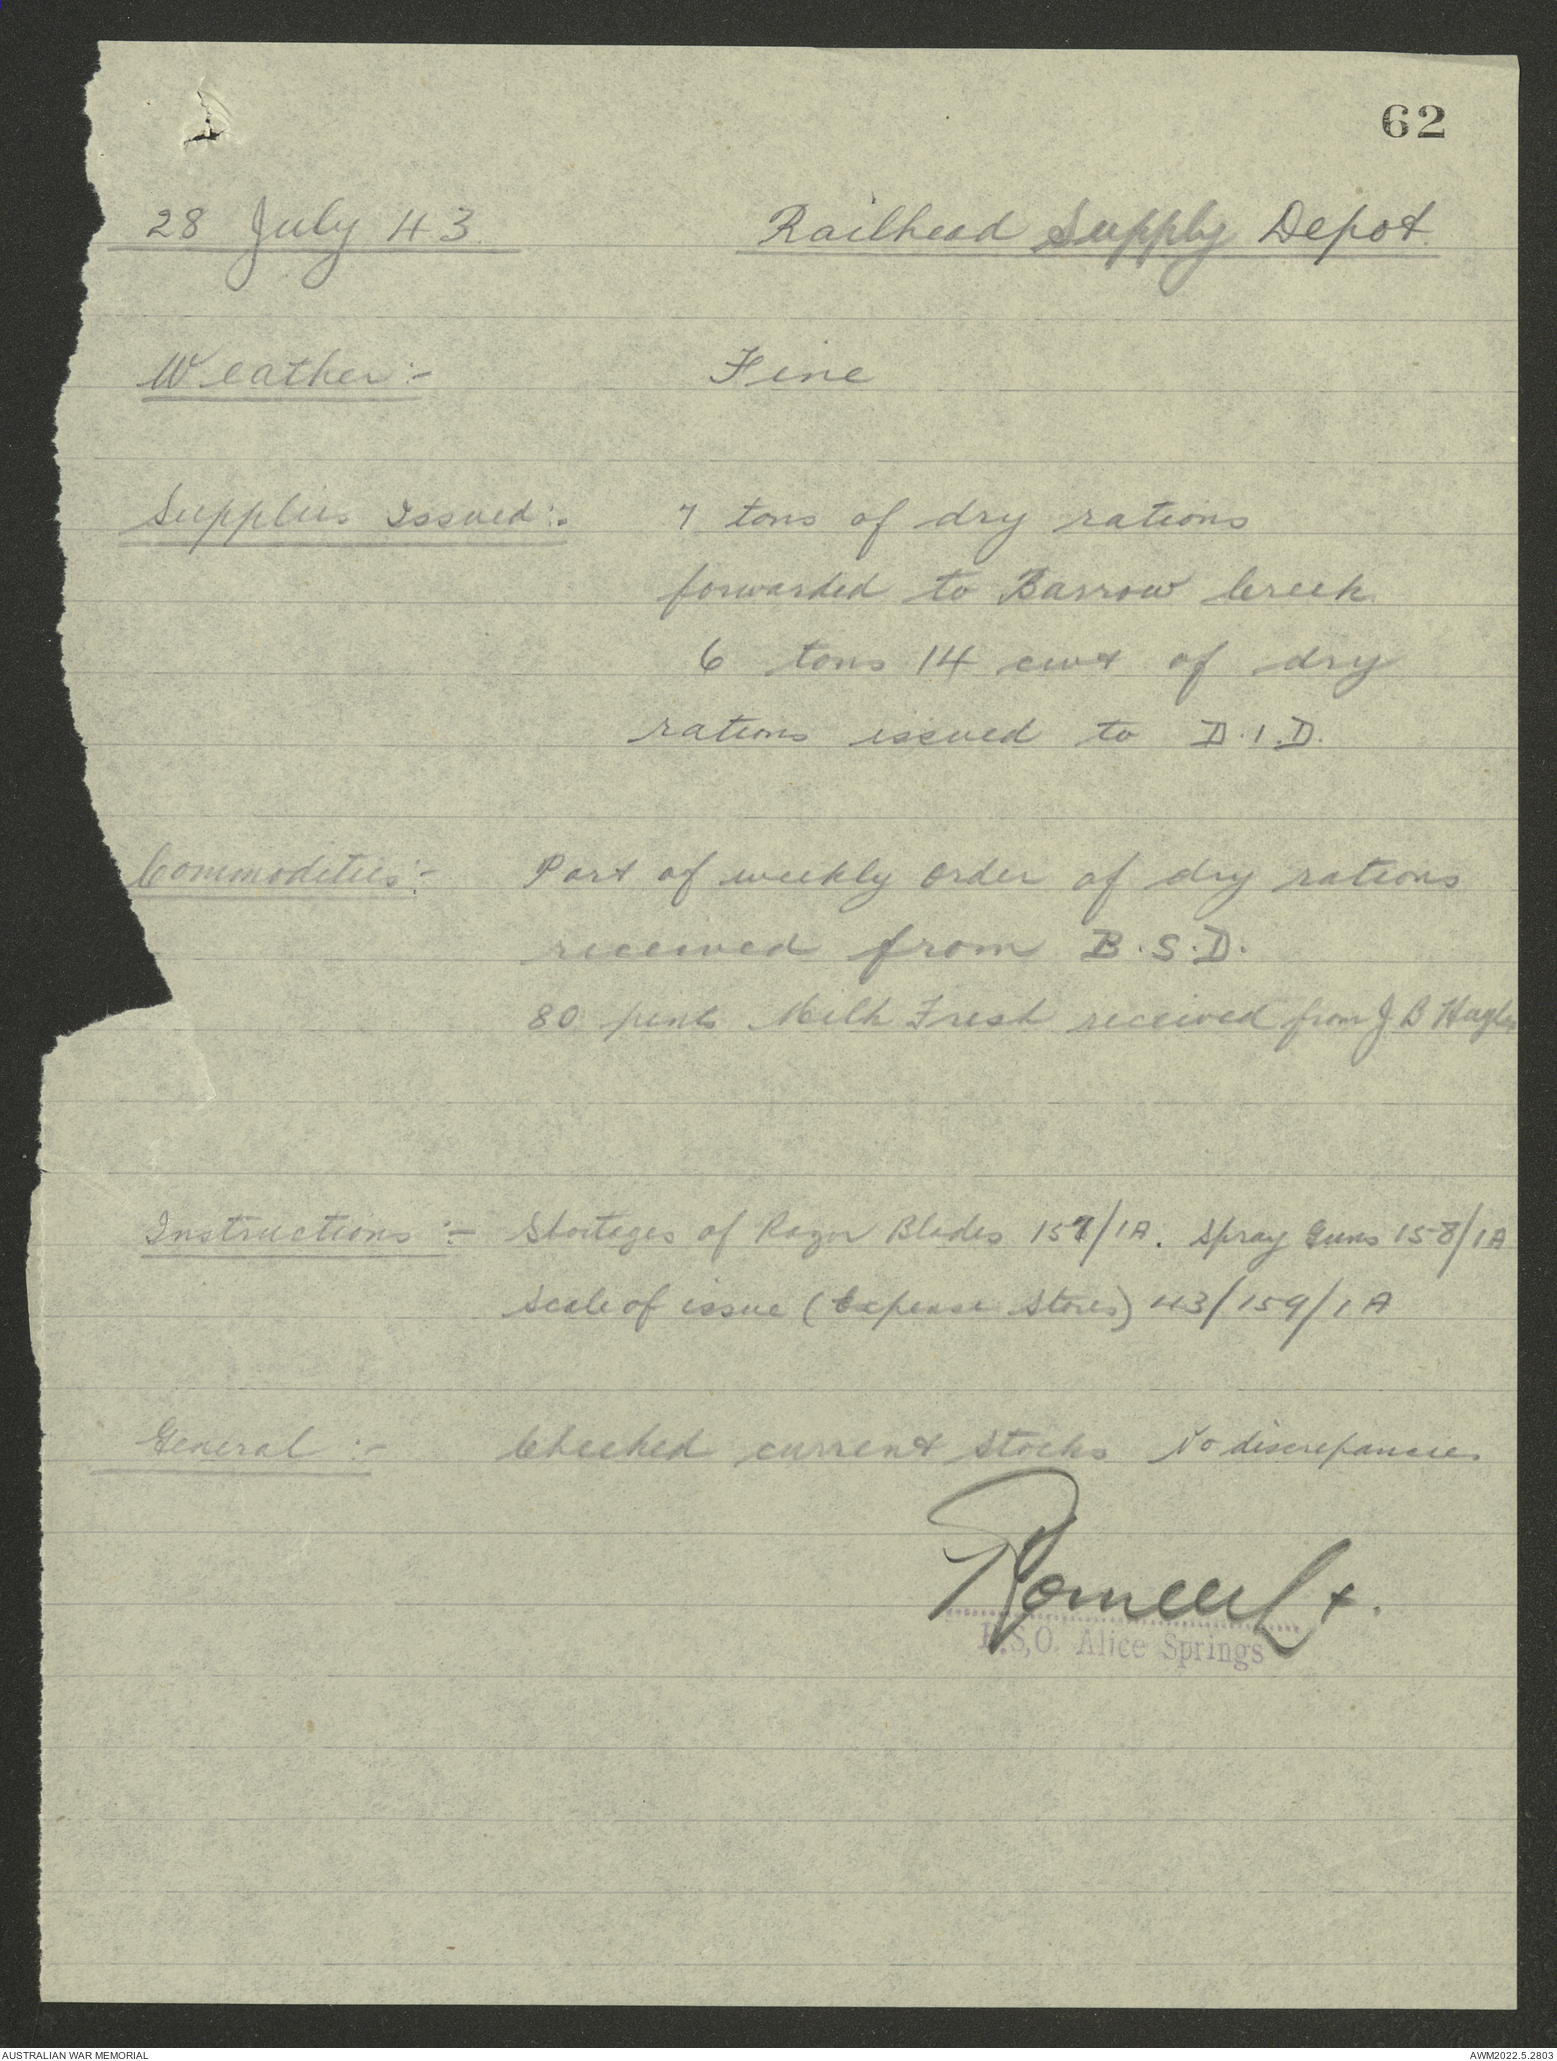 62
28 July 43 Railhead Supply Depot
Weather:- Fine
Supplies Issued:- 7 tons of dry rations
forwarded to Barrow Creek
6 tons 14 cwt of dry
rations issued to D.I.D.
Commodities:- Part of weekly order of dry rations
received from B.S.D.
80 pints Milk Fresh received from J B Hughes
Instructions:- Shortages of Razor Blades 157/1A. Spray Guns 158/1A
Scale of issue (Expense Stores) 43/159/1A
General:- Checked current stocks No discrepancies
R.S,O. Alice Springs
AUSTRALIAN WAR MEMORIAL AWM2022.5.2803